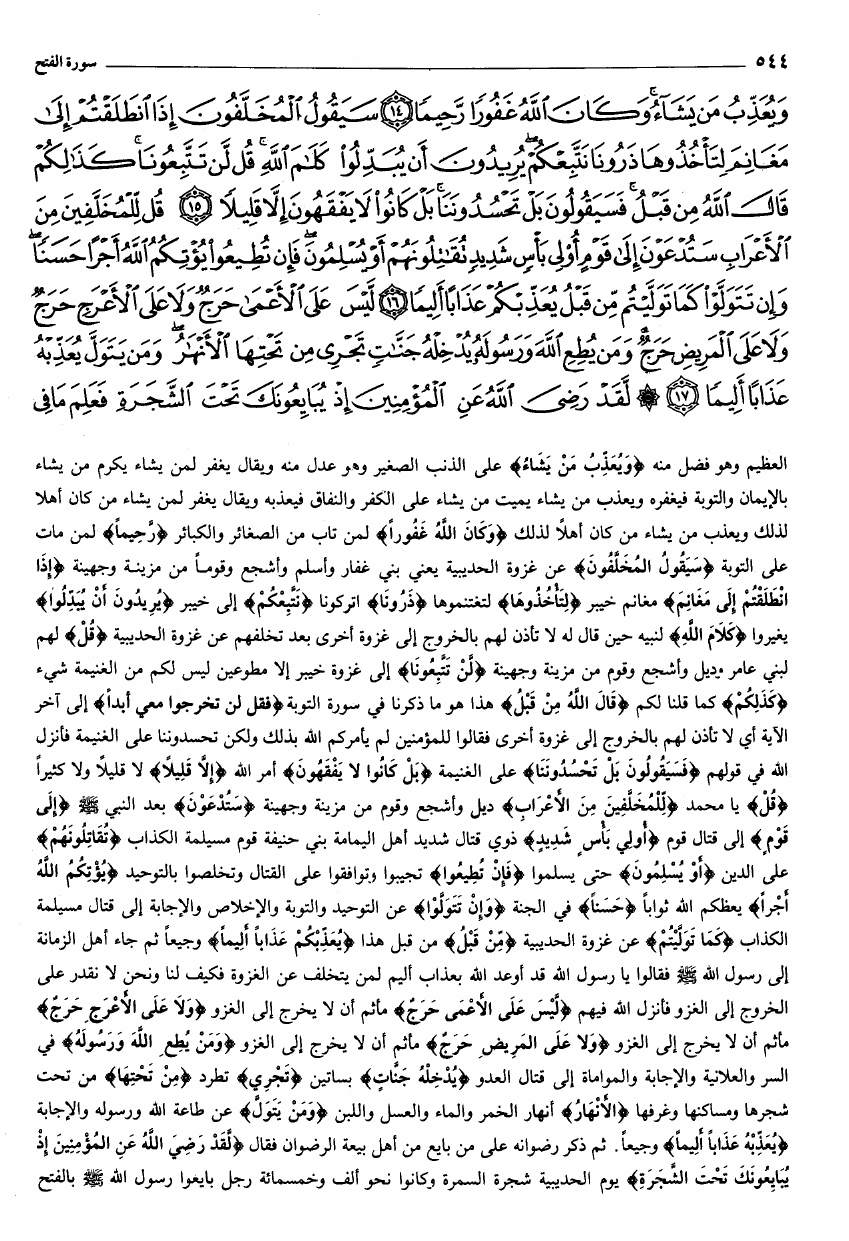 ٥٤٤ سورة الفتح
وَيُعَذِّبُ مَن يَشَآءُ ۚ وَكَانَ ٱللَّهُ غَفُورًا رَّحِيمًا ١٤ سَيَقُولُ ٱلْمُخَلَّفُونَ إِذَا ٱنطَلَقْتُمْ إِلَىٰ
مَغَانِمَ لِتَأْخُذُوهَا ذَرُونَا نَتَّبِعْكُمْ ۖ يُرِيدُونَ أَن يُبَدِّلُوا۟ كَلَٰمَ ٱللَّهِ ۚ قُل لَّن تَتَّبِعُونَا ۚ كَذَٰلِكُمْ
قَالَ ٱللَّهُ مِن قَبْلُ ۖ فَسَيَقُولُونَ بَلْ تَحْسُدُونَنَا ۚ بَلْ كَانُوا۟ لَا يَفْقَهُونَ إِلَّا قَلِيلًا ١٥ قُل لِّلْمُخَلَّفِينَ مِنَ
ٱلْأَعْرَابِ سَتُدْعَوْنَ إِلَىٰ قَوْمٍ أُو۟لِى بَأْسٍ شَدِيدٍ تُقَٰتِلُونَهُمْ أَوْ يُسْلِمُونَ ۖ فَإِن تُطِيعُوا۟ يُؤْتِكُمُ ٱللَّهُ أَجْرًا حَسَنًا ۖ
وَإِن تَتَوَلَّوْا۟ كَمَا تَوَلَّيْتُم مِّن قَبْلُ يُعَذِّبْكُمْ عَذَابًا أَلِيمًا ١٦ لَّيْسَ عَلَى ٱلْأَعْمَىٰ حَرَجٌ وَلَا عَلَى ٱلْأَعْرَجِ حَرَجٌ
وَلَا عَلَى ٱلْمَرِيضِ حَرَجٌ ۗ وَمَن يُطِعِ ٱللَّهَ وَرَسُولَهُۥ يُدْخِلْهُ جَنَّٰتٍ تَجْرِى مِن تَحْتِهَا ٱلْأَنْهَٰرُ ۖ وَمَن يَتَوَلَّ يُعَذِّبْهُ
عَذَابًا أَلِيمًا ١٧ ۞ لَّقَدْ رَضِىَ ٱللَّهُ عَنِ ٱلْمُؤْمِنِينَ إِذْ يُبَايِعُونَكَ تَحْتَ ٱلشَّجَرَةِ فَعَلِمَ مَا فِى
العظيم وهو فضل منه ﴿وَيُعَذِّبُ مَنْ يَشَاءُ﴾ على الذنب الصغير وهو عدل منه ويقال يغفر لمن يشاء يكرم من يشاء
بالإيمان والتوبة فيغفره ويعذب من يشاء يميت من يشاء على الكفر والنفاق فيعذبه ويقال يغفر لمن يشاء من كان أهلا
لذلك ويعذب من يشاء من كان أهلاً لذلك ﴿وَكَانَ اللَّهُ غَفُوراً﴾ لمن تاب من الصغائر والكبائر ﴿رَّحِيماً﴾ لمن مات
على التوبة ﴿سَيَقُولُ المُخَلَّفُونَ﴾ عن غزوة الحديبية يعني بني غفار وأسلم وأشجع وقوماً من مزينة وجهينة ﴿إِذَا
انْطَلَقْتُمْ إِلَى مَغَانِمَ﴾ مغانم خيبر ﴿لِتَأْخُذُوهَا﴾ لتغتنموها ﴿ذَرُونَا﴾ اتركونا ﴿نَتَّبِعْكُمْ﴾ إلى خيبر ﴿يُرِيدُونَ أَنْ يُبَدِّلُوا﴾
يغيروا ﴿كَلَامَ اللَّهِ﴾ لنبيه حين قال له لا تأذن لهم بالخروج إلى غزوة أخرى بعد تخلفهم عن غزوة الحديبية ﴿قُلْ﴾ لهم
لبني عامر وديل وأشجع وقوم من مزينة وجهينة ﴿لَّنْ تَتَّبِعُونَا﴾ إلى غزوة خيبر إلا مطوعين ليس لكم من الغنيمة شيء
﴿كَذَلِكُمْ﴾ كما قلنا لكم ﴿قَالَ اللَّهُ مِن قَبْلُ﴾ هذا هو ما ذكرنا في سورة التوبة ﴿فقل لن تخرجوا معي أبداً﴾ إلى آخر
الآية أي لا تأذن لهم بالخروج إلى غزوة أخرى فقالوا للمؤمنين لم يأمركم الله بذلك ولكن تحسدوننا على الغنيمة فأنزل
الله في قولهم ﴿فَسَيَقُولُونَ بَلْ تَحْسُدُونَنَا﴾ على الغنيمة ﴿بَلْ كَانُوا لا يَفْقَهُونَ﴾ أمر الله ﴿إِلَّا قَلِيلاً﴾ لا قليلاً ولا كثيراً
﴿قُلْ﴾ يا محمد ﴿لِلْمُخَلَّفِينَ مِنَ الأَعْرَابِ﴾ ديل وأشجع وقوم من مزينة وجهينة ﴿سَتُدْعَوْنَ﴾ بعد النبي ﷺ ﴿إِلَى
قَوْمٍ﴾ إلى قتال قوم ﴿أُولِي بَأْسٍ شَدِيدٍ﴾ ذوي قتال شديد أهل اليمامة بني حنيفة قوم مسيلمة الكذاب ﴿تُقَاتِلُونَهُمْ﴾
على الدين ﴿أَوْ يُسْلِمُونَ﴾ حتى يسلموا ﴿فَإِنْ تُطِيعُوا﴾ تجيبوا وتوافقوا على القتال وتخلصوا بالتوحيد ﴿يُؤْتِكُمُ اللَّهُ
أَجْراً﴾ يعظكم الله ثواباً ﴿حَسَناً﴾ في الجنة ﴿وَإِنْ تَتَوَلَّوْا﴾ عن التوحيد والتوبة والإخلاص والإجابة إلى قتال مسيلمة
الكذاب ﴿كَمَا تَوَلَّيْتُمْ﴾ عن غزوة الحديبية ﴿مِّنْ قَبْلُ﴾ من قبل هذا ﴿يُعَذِّبْكُمْ عَذَاباً أَلِيماً﴾ وجيعاً ثم جاء أهل الزمانة
إلى رسول الله ﷺ فقالوا يا رسول الله قد أوعد الله بعذاب أليم لمن يتخلف عن الغزوة فكيف لنا ونحن لا نقدر على
الخروج إلى الغزو فأنزل الله فيهم ﴿لَّيْسَ عَلَى الأَعْمَى حَرَجٌ﴾ مأثم أن لا يخرج إلى الغزو ﴿وَلَا عَلَى الأَعْرَجِ حَرَجٌ﴾
مأثم أن لا يخرج إلى الغزو ﴿وَلا عَلَى المَرِيضِ حَرَجٌ﴾ مأثم أن لا يخرج إلى الغزو ﴿وَمَنْ يُطِعِ اللَّهَ وَرَسُولَهُ﴾ في
السر والعلانية والإجابة والموافاة إلى قتال العدو ﴿يُدْخِلْهُ جَنَّاتٍ﴾ بساتين ﴿تَجْرِي﴾ تطرد ﴿مِنْ تَحْتِهَا﴾ من تحت
شجرها ومساكنها وغرفها ﴿الأَنْهَارُ﴾ أنهار الخمر والماء والعسل واللبن ﴿وَمَنْ يَتَوَلَّ﴾ عن طاعة الله ورسوله والإجابة
﴿يُعَذِّبْهُ عَذَاباً أَلِيماً﴾ وجيعاً. ثم ذكر رضوانه على من بايع من أهل بيعة الرضوان فقال ﴿لَّقَدْ رَضِيَ اللَّهُ عَنِ المُؤْمِنِينَ إِذْ
يُبَايِعُونَكَ تَحْتَ الشَّجَرَةِ﴾ يوم الحديبية شجرة السمرة وكانوا نحو ألف وخمسمائة رجل بايعوا رسول الله ﷺ بالفتح